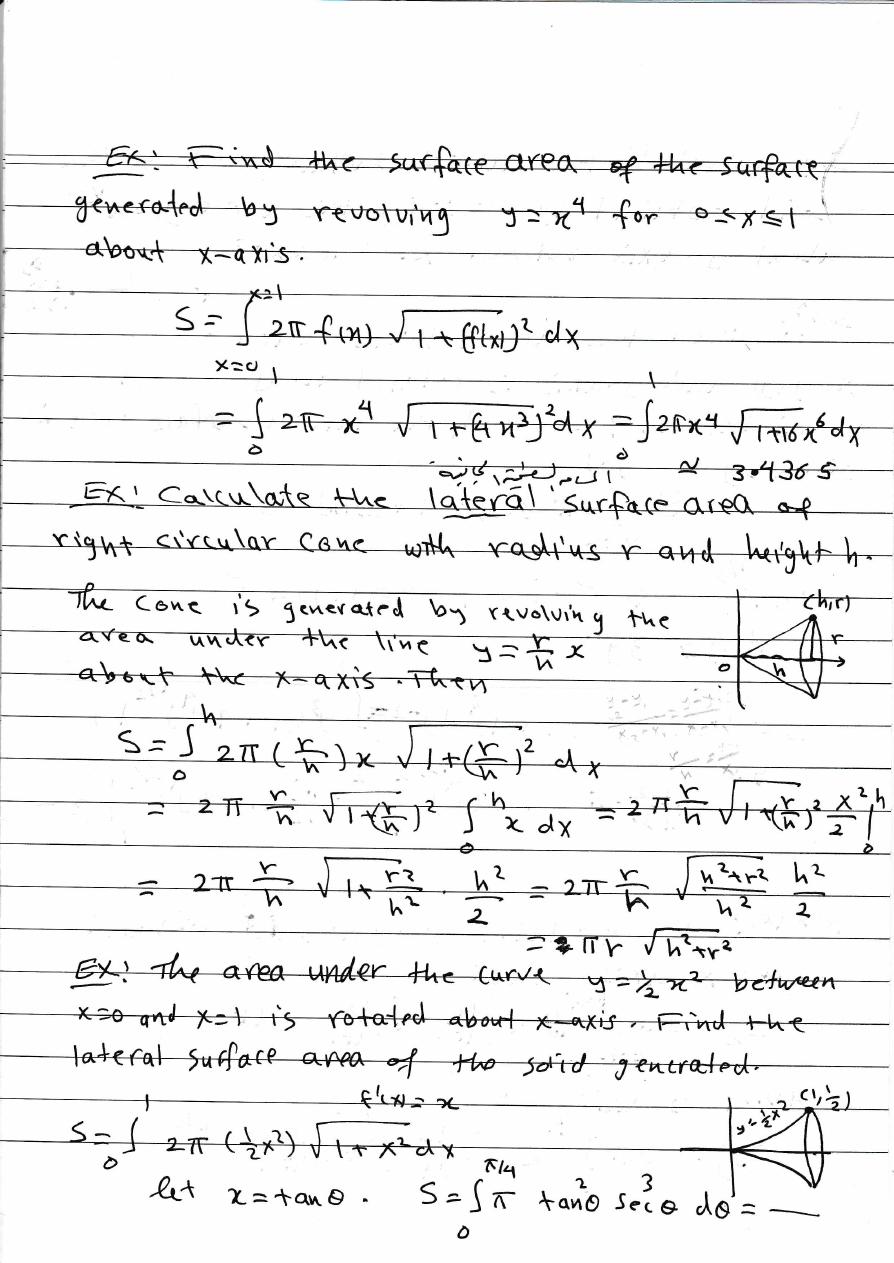 Ex: Find the surface area of the surface
generated by revolving y = x⁴ for 0 ≤ x ≤ 1
about x-axis.
S = ∫_{x=0}^{x=1} 2π f(x) √(1 + (f'(x))²) dx
= ∫_0^1 2π x⁴ √(1 + (4x³)²) dx = ∫_0^1 2πx⁴ √(1+16x⁶) dx
≃ 3.4365
Ex: Calculate the lateral surface area of
right circular cone with radius r and height h.
The cone is generated by revolving the
area under the line y = r/h x
about the x-axis. Then
(h,r)
r
0
h
S = ∫_0^h 2π (r/h) x √(1 + (r/h)²) dx
= 2π r/h √(1+(r/h)²) ∫_0^h x dx = 2π r/h √(1+(r/h)²) x²/2 |_0^h
= 2π r/h √(1 + r²/h²) · h²/2 = 2π r/h √((h²+r²)/h²) h²/2
= πr √(h²+r²)
Ex: The area under the curve y = ½ x² between
x=0 and x=1 is rotated about x-axis. Find the
lateral surface area of the solid generated.
f'(x) = x
S = ∫_0^1 2π (½x²) √(1 + x²) dx
y = ½x²
(1,½)
let x = tan θ. S = ∫_0^{π/4} π tan²θ sec³θ dθ = —